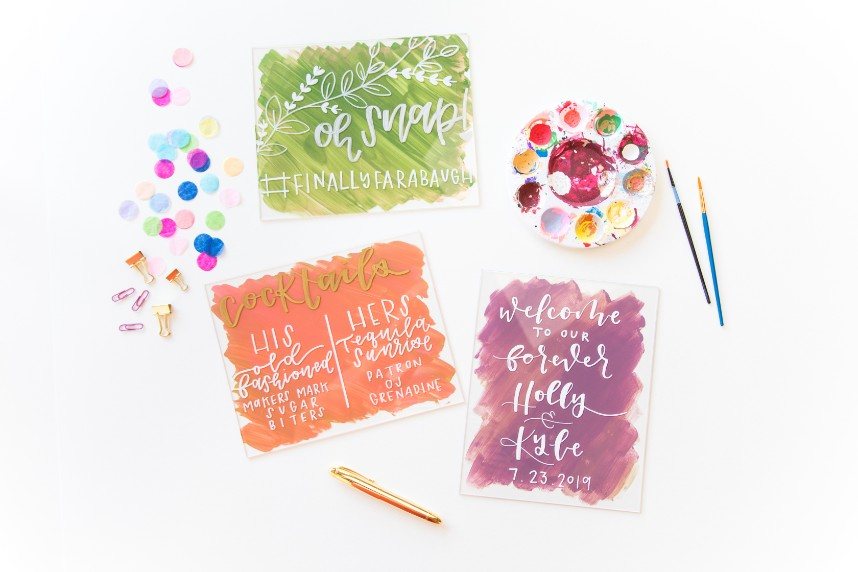 oh snap!
#FINALLYFARABAUGH
cocktails
HIS
old
fashioned
MAKERS MARK
SUGAR
BITERS
HERS
Tequila
Sunrise
PATRON
OJ
GRENADINE
welcome
TO OUR
forever
Holly
&
Kybe
7.23.2019